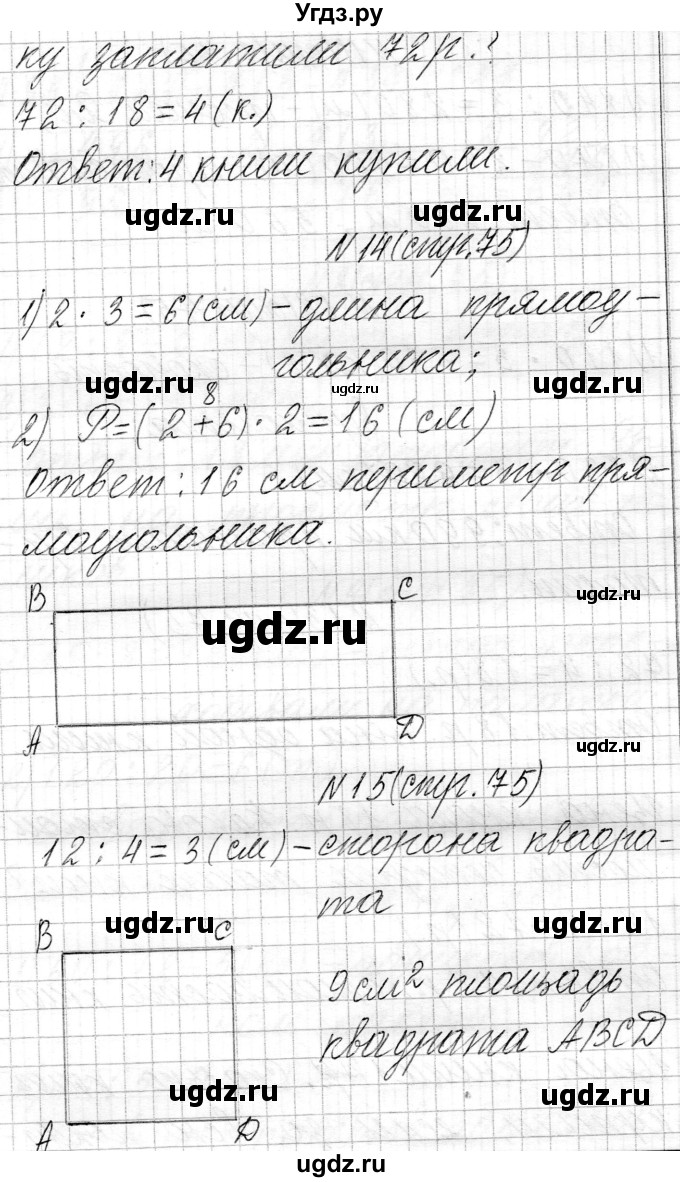 Угдз.ру
ку заплатили 72 р.?
72 : 18 = 4 (к.)
Ответ: 4 книги купили.
ugdz.ru ugdz.ru
N 14 (стр. 75)
1) 2 · 3 = 6 (см) – длина прямоу-
гольника;
ugdz.ru ugdz.ru ugdz.ru
8
2) P = (2 + 6) · 2 = 16 (см)
Ответ: 16 см периметр пря-
моугольника.
B C ugdz.ru
ugdz.ru
A D ugdz.ru
N 15 (стр. 75)
12 : 4 = 3 (см) – сторона квадра-
та
ugdz.ru ugdz.ru
B C
9 см² площадь
квадрата ABCD
ugdz.ru ugdz.ru
A D
ugdz.ru